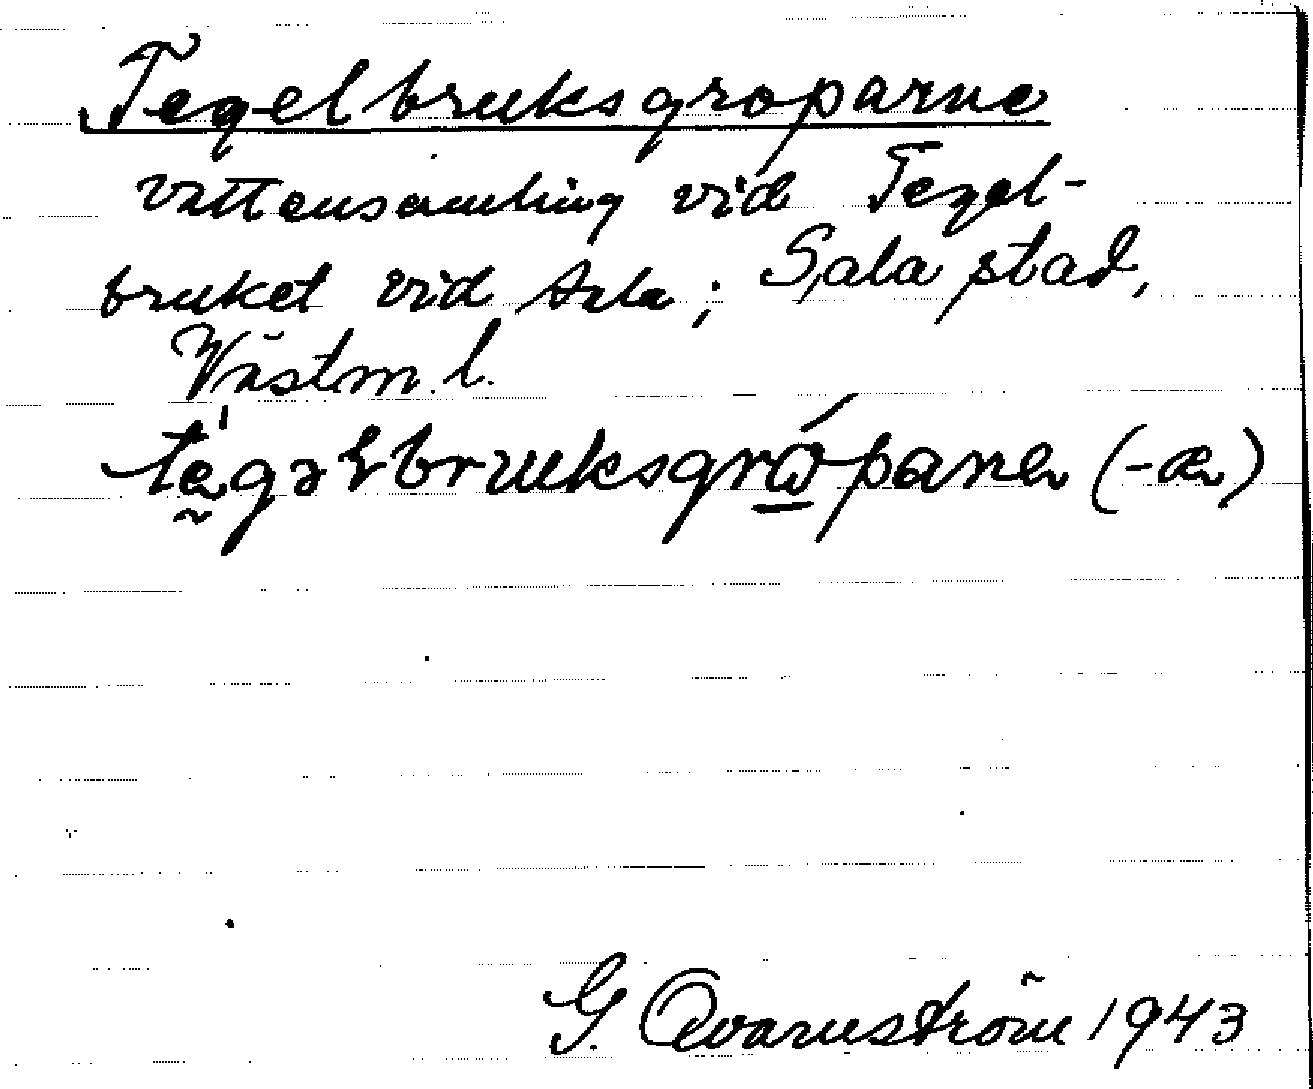 Tegelbruksgroparne
vattensamling vid Tegel-
bruket vid Sala; Sala stad,
Västm. l.
tegəlbruksgrópana (-æ)
G. Qvarnström 1943